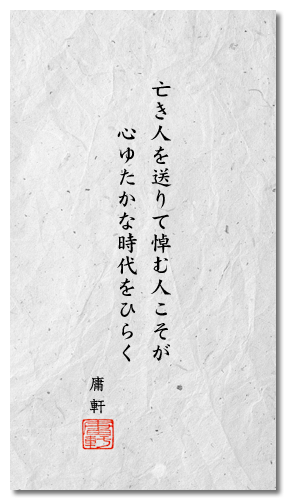 亡き人を送りて悼む人こそが
心ゆたかな時代をひらく
庸軒